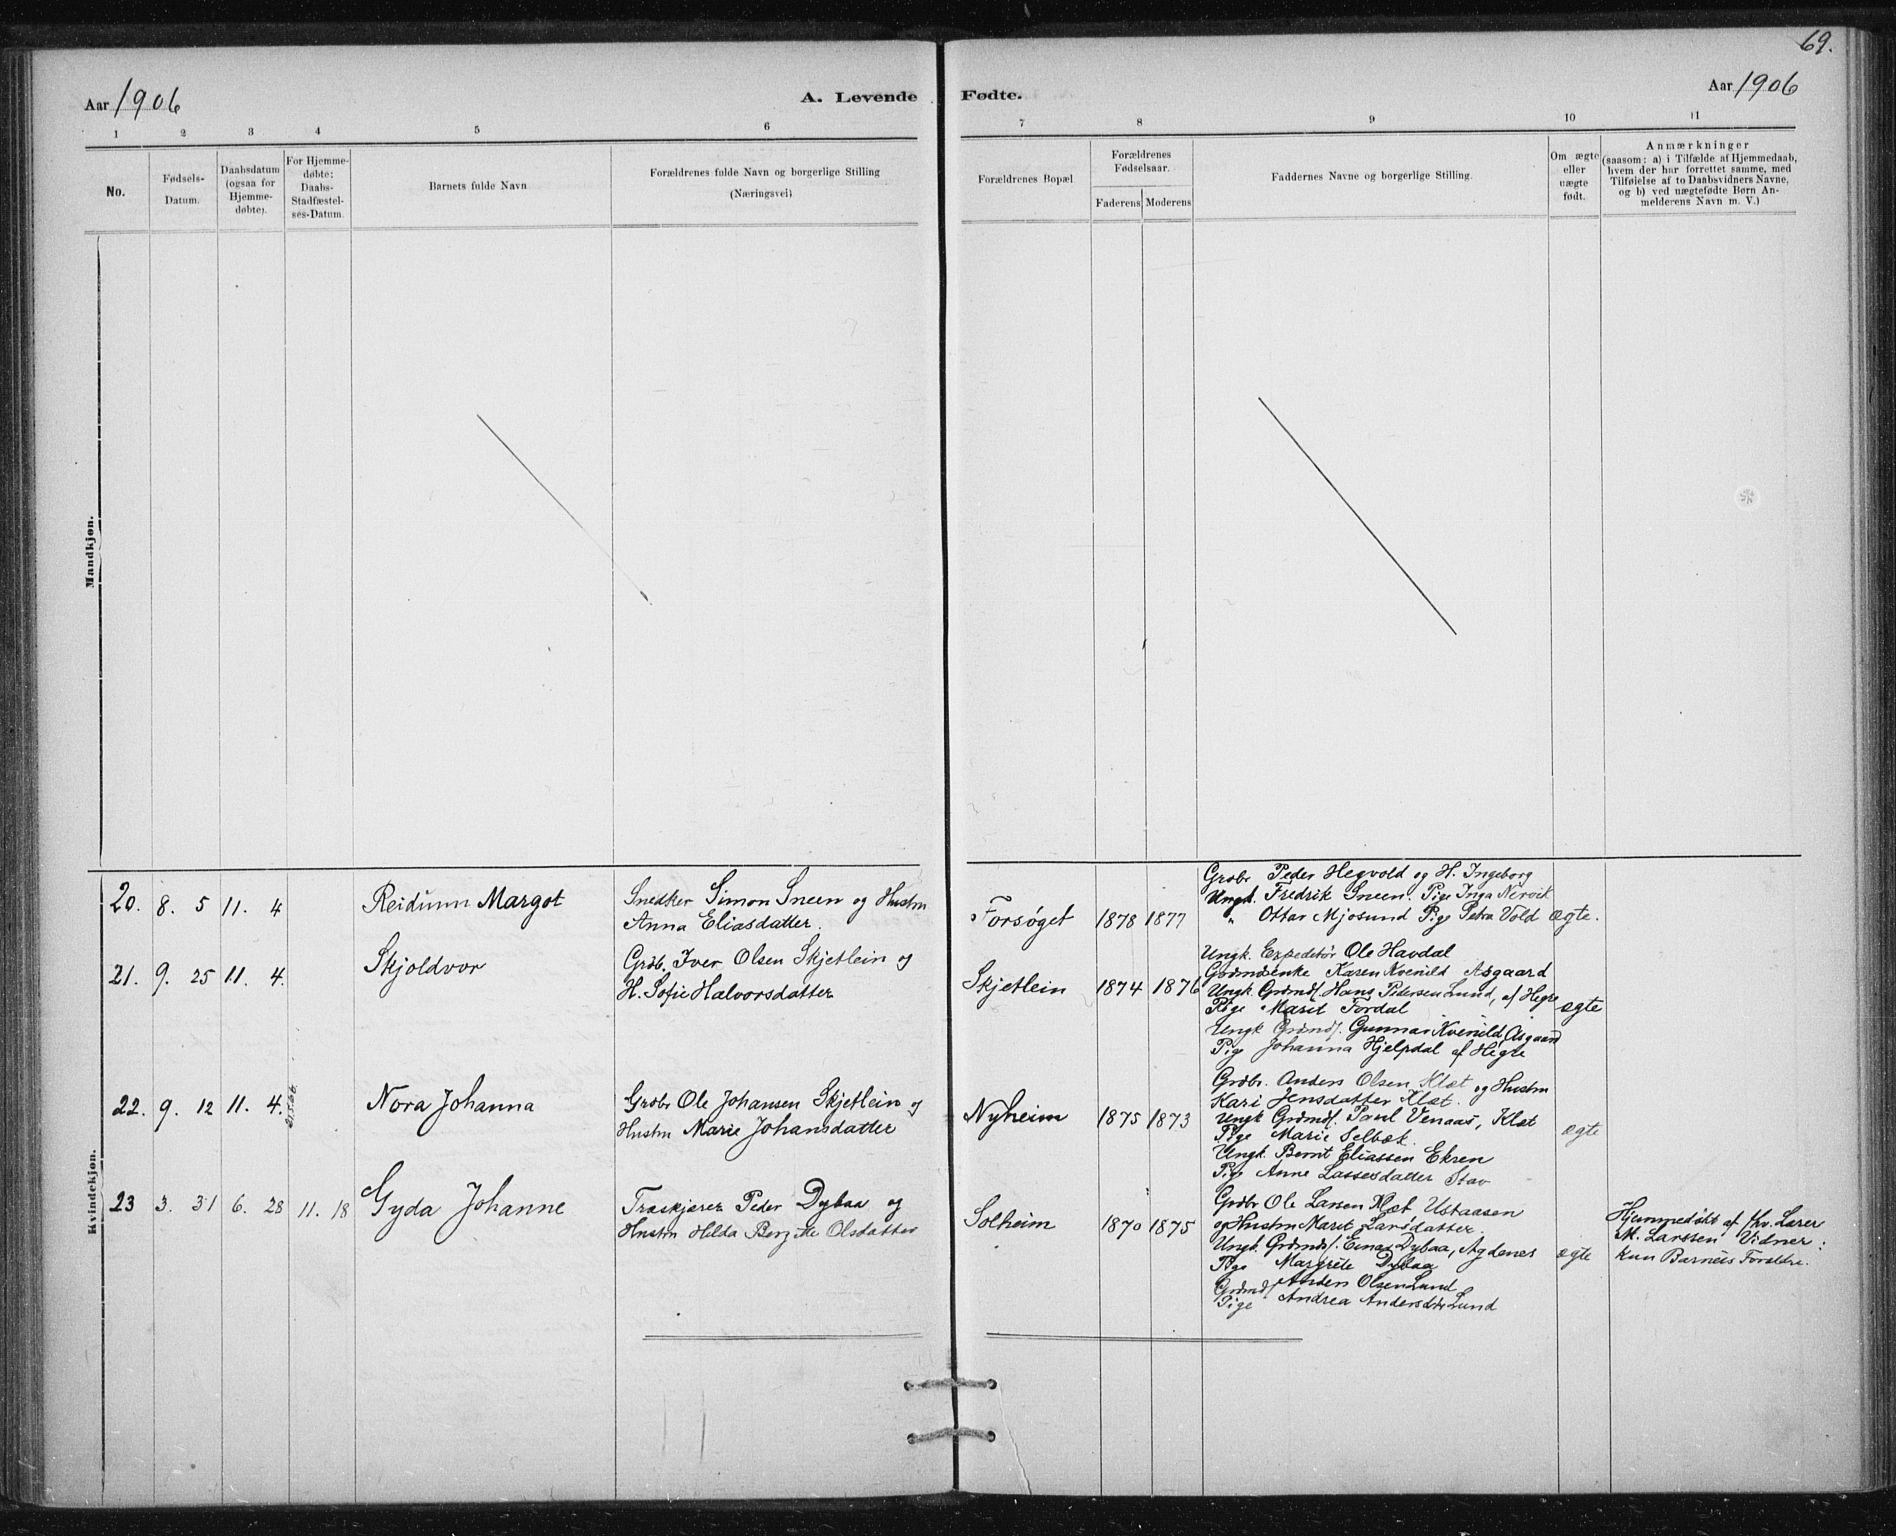 69.
Aar 1906
A. Levende Fødte.
Aar 1906
1 2 3 4 5 6 7 8 9 10 11
No.
Fødsels-
Datum.
Daabsdatum
(ogsaa for
Hjemme-
døbte).
For Hjemme-
døbte:
Daabs-
Stadfæstel-
ses-Datum.
Barnets fulde Navn
Forældrenes fulde Navn og borgerlige Stilling
(Næringsvei)
Forældrenes Bopæl
Forældrenes
Fødselsaar.
Faderens Moderens
Faddernes Navne og borgerlige Stilling.
Om ægte
eller
uægte
født.
Anmærkninger
(saasom: a) i Tilfælde af Hjemmedaab,
hvem der har forrettet samme, med
Tilføielse af to Daabsvidners Navne,
og b) ved uægtefødte Børn An-
melderens Navn m. V.)
Mandkjøn.
Kvindekjøn.
20. 8. 5 11. 4
Reidunn Margot
Snedker Simon Sneen og Hustru
Anna Eliasdatter.
Forsøget 1878 1877
Grdbr Peder Hegvold og H. Ingeborg
Ungk. Fredrik Sneen. Pige Inga Nervik
" Ottar Mjosund Pige Petra Vold
ægte.
21. 9. 25 11. 4.
Skjoldvor
Grdb. Iver Olsen Skjetlein og
H. Sofie Halvorsdatter
Skjetlein 1874 1876
Ungk. Expeditør Ole Havdal
Grdmdenke Karen Kvenild Asgaard
Ungk. Grdmds. Hans Pedersen Lund, af Hegre
Pige Marit Fordal
Ungk Grdmds. Gunnar Kvenild, Asgaard
Pige Johanna Hjelpdal af Hegre
ægte
22. 9. 12 11. 4.
Nora Johanna
Grdbr Ole Johansen Skjetlein og
Hustru Marie Johansdatter
Nyheim 1875 1873
Grdbr. Anders Olsen Klæt og Hustru
Kari Jensdatter Klæt.
Ungk Grdmds. Paul Venaas, Klæt
Pige Marie Selbæk.
Ungk. Bernt Eliassen Ekren
Pige Anne Lassesdatter Stav
ægte
23 3. 31 6. 28 11. 18
Gyda Johanne
Træskjærer Peder Dybaa og
Hustru Hilda Bergitte Olsdatter
Solheim 1870 1875
Grdbr Ole Larsen Klæt Ustaasen
og Hustru Marit Larsdatter.
Ungk. Grdmds. Einar Dybaa, Agdenes
Pige Margrete Dybaa
Grdmds Anders Olsen Lund
Pige Andrea Andersdtr Lund
ægte
Hjemmedøbt af fhv. Lærer
M. Larssen Vidner:
kun Barnets Forældre.